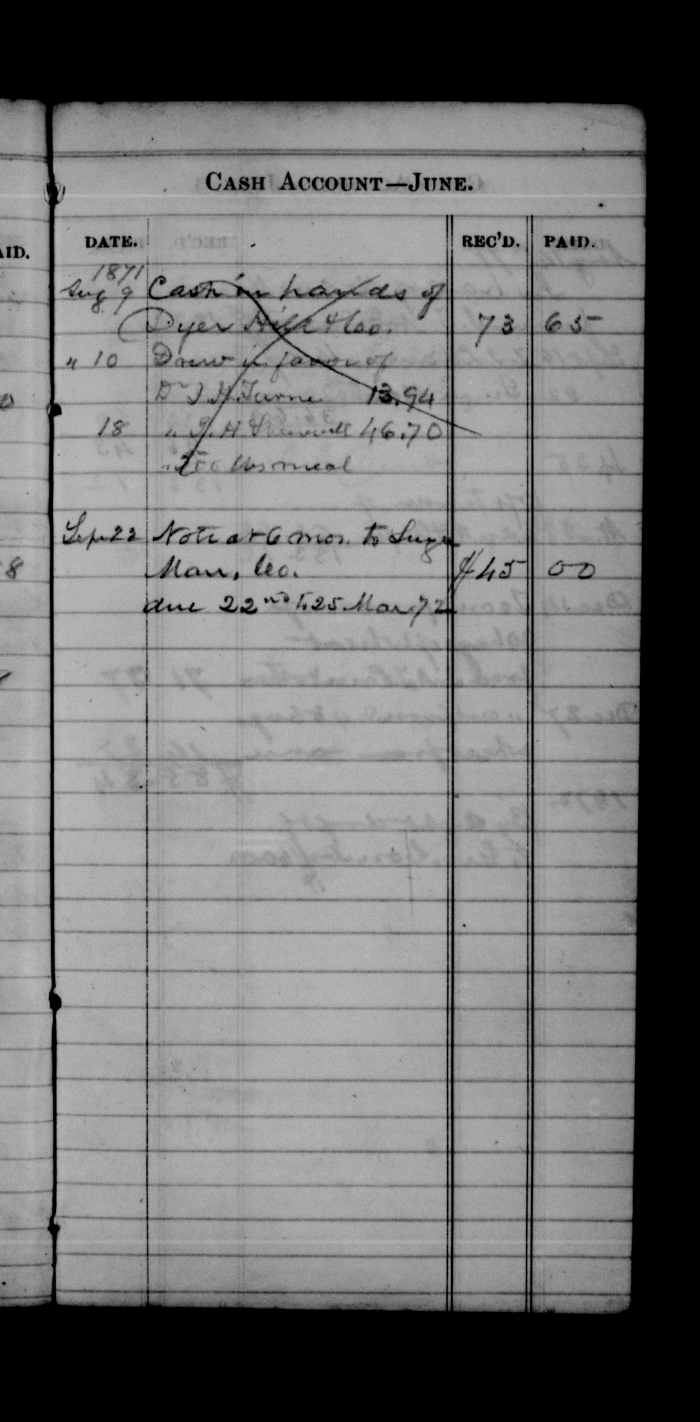 AID.
CASH ACCOUNT—JUNE.
DATE. REC'D. PAID.
1871
Aug 9 Cash in hands of
Dyer Hill & Co. 73 65
" 10 Drew in favor of
Dr J. H. Turner 13.94
18 " J. H. 46.70
" lbs meal
Sep 22 Note at 6 mos. to
Man, Co. $45 00
due 22nd & 25 Mar. 72
8